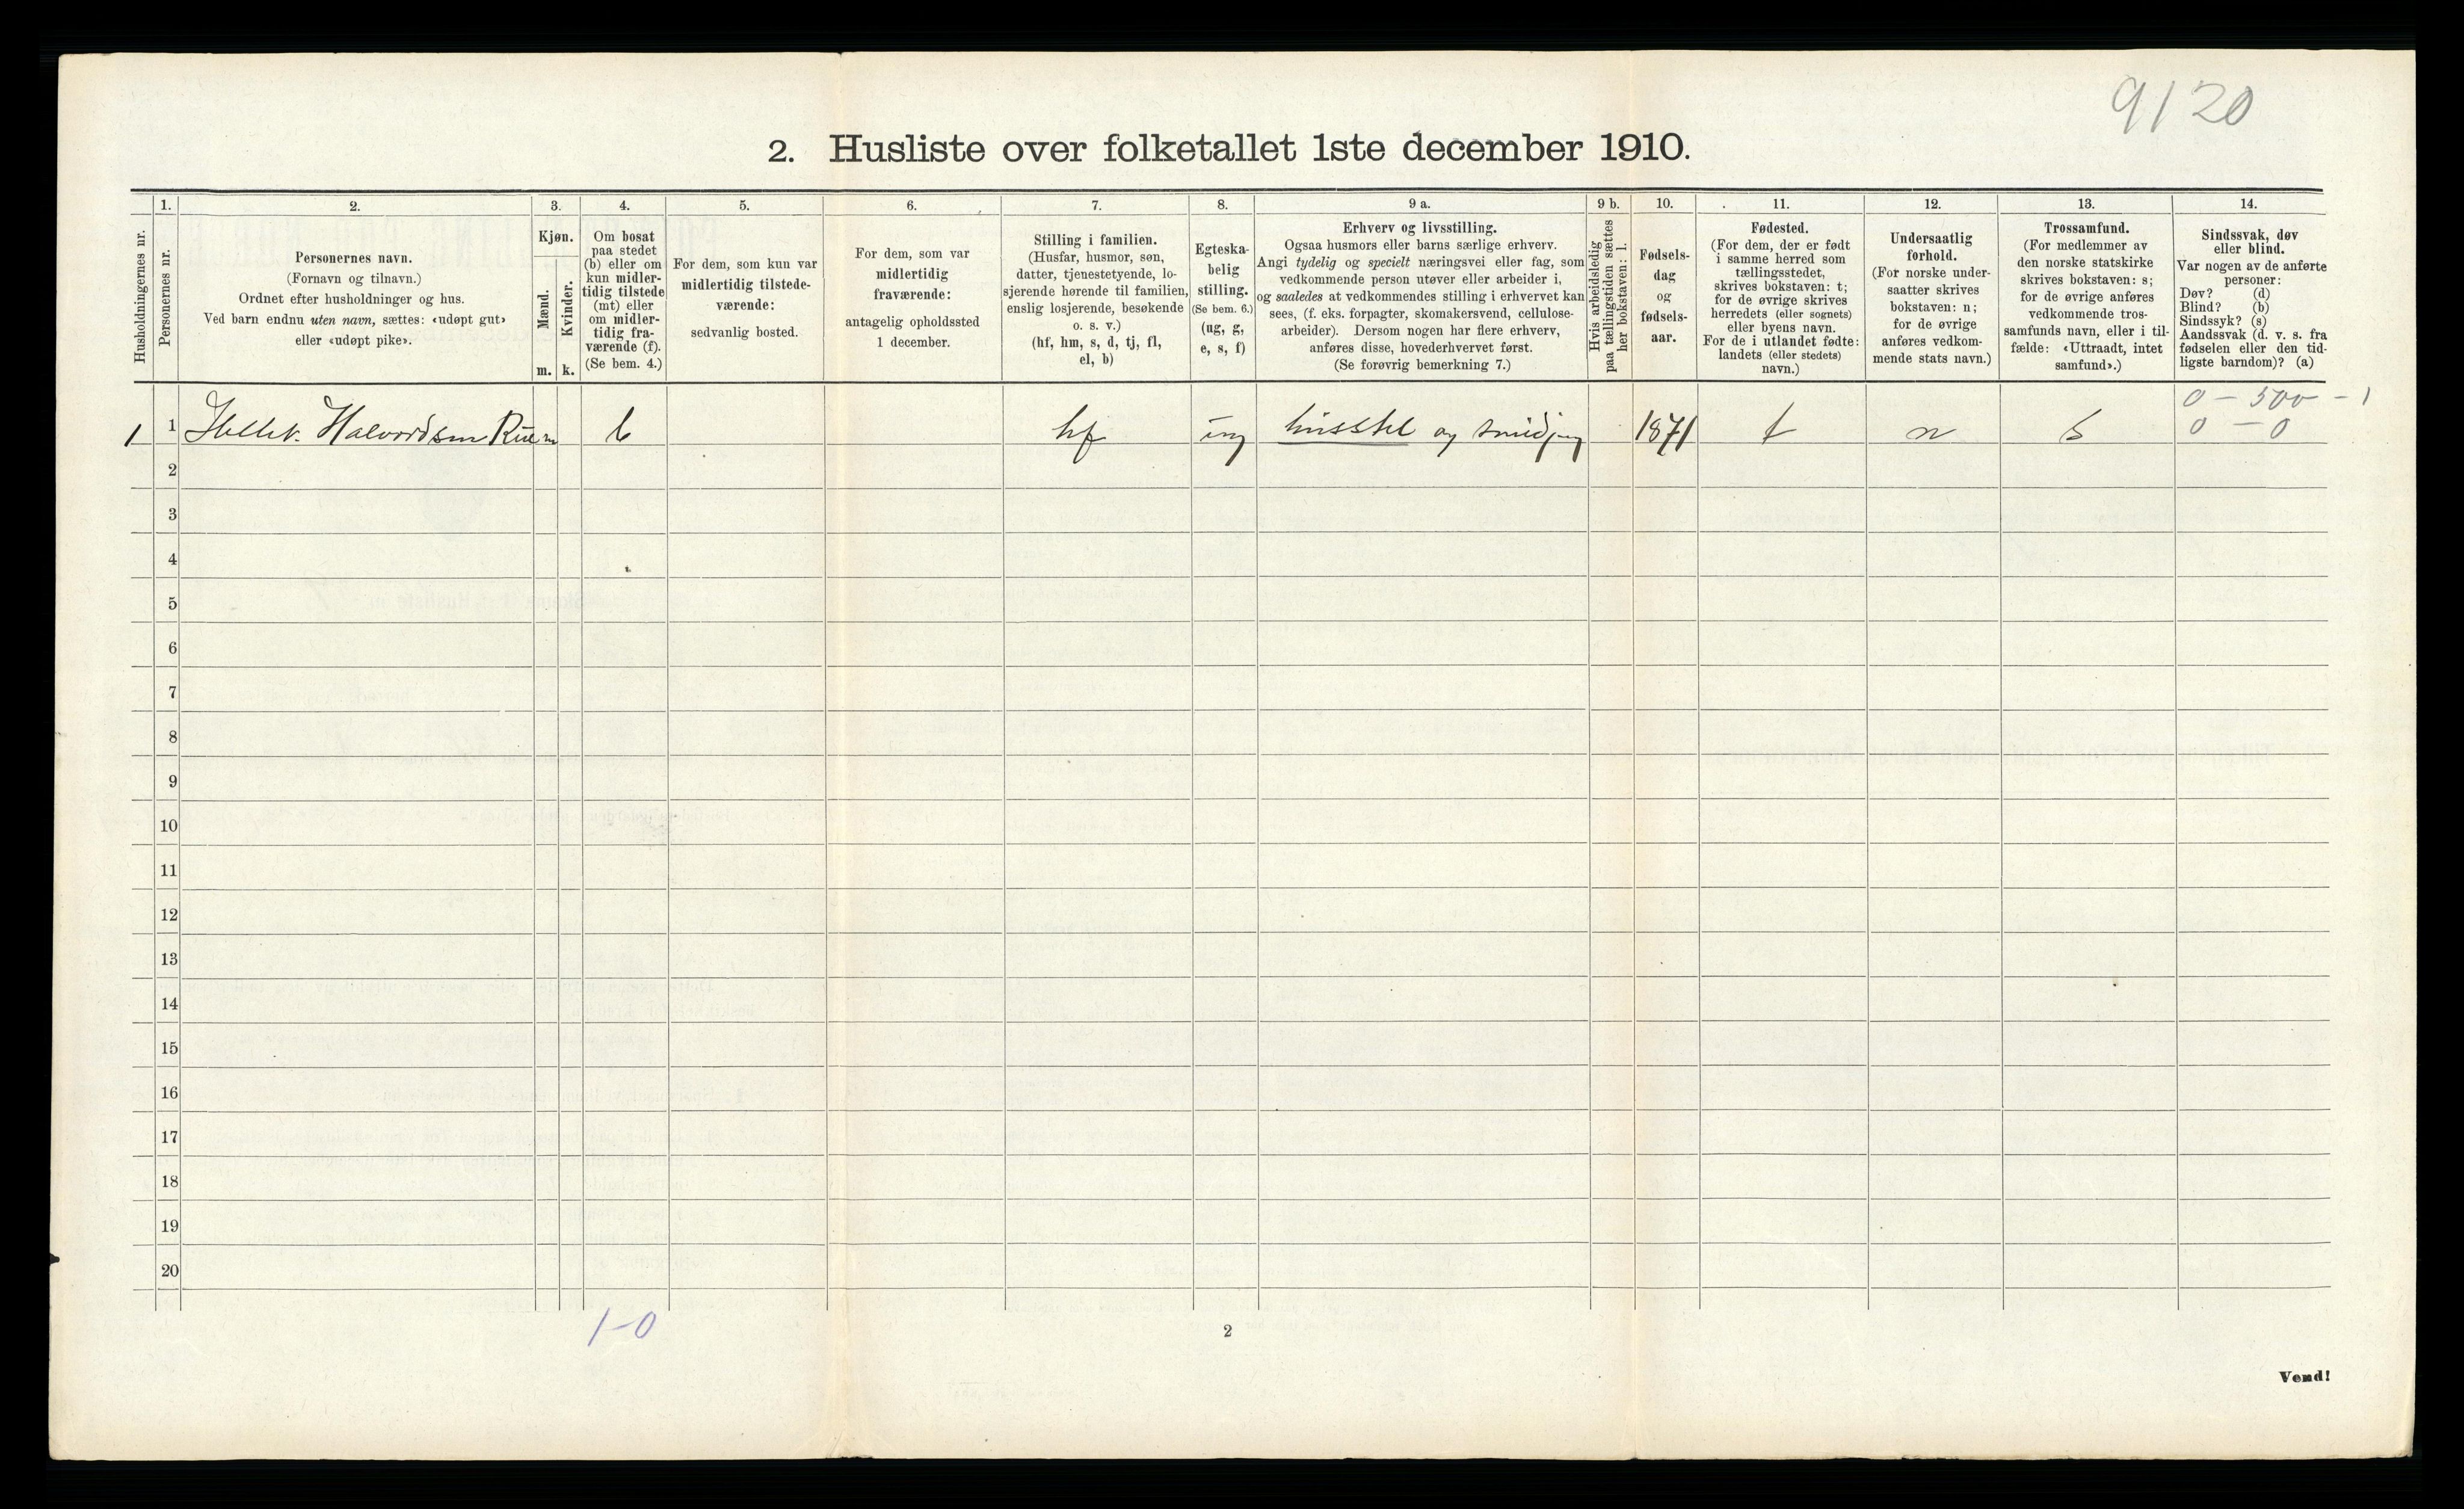 9120
2. Husliste over folketallet 1ste december 1910.
Husholdningernes nr.
1.
Personernes nr.
2.
Personernes navn.
(Fornavn og tilnavn.)
Ordnet efter husholdninger og hus.
Ved barn endnu uten navn, sættes: «udøpt gut»
eller «udøpt pike».
3.
Kjøn.
Mænd.
Kvinder.
m. k.
4.
Om bosat
paa stedet
(b) eller om
kun midler-
tidig tilstede
(mt) eller
om midler-
tidig fra-
værende (f).
(Se bem. 4.)
5.
For dem, som kun var
midlertidig tilstede-
værende:
sedvanlig bosted.
6.
For dem, som var
midlertidig
fraværende:
antagelig opholdssted
1 december.
7.
Stilling i familien.
(Husfar, husmor, søn,
datter, tjenestetyende, lo-
sjerende hørende til familien,
enslig losjerende, besøkende
o. s. v.)
(hf, hm, s, d, tj, fl,
el, b)
8.
Egteska-
belig
stilling.
(Se bem. 6.)
(ug, g,
e, s, f)
9 a.
Erhverv og livsstilling.
Ogsaa husmors eller barns særlige erhverv.
Angi tydelig og specielt næringsvei eller fag, som
vedkommende person utøver eller arbeider i,
og saaledes at vedkommendes stilling i erhvervet kan
sees, (f. eks. forpagter, skomakersvend, cellulose-
arbeider). Dersom nogen har flere erhverv,
anføres disse, hovederhvervet først.
(Se forøvrig bemerkning 7.)
9 b.
Hvis arbeidsledig
paa tællingstiden sættes
her bokstaven: l.
10.
Fødsels-
dag
og
fødsels-
aar.
11.
Fødested.
(For dem, der er født
i samme herred som
tællingsstedet,
skrives bokstaven: t;
for de øvrige skrives
herredets (eller sognets)
eller byens navn.
For de i utlandet fødte:
landets (eller stedets)
navn.)
12.
Undersaatlig
forhold.
(For norske under-
saatter skrives
bokstaven: n;
for de øvrige
anføres vedkom-
mende stats navn.)
13.
Trossamfund.
(For medlemmer av
den norske statskirke
skrives bokstaven: s;
for de øvrige anføres
vedkommende tros-
samfunds navn, eller i til-
fælde: «Uttraadt, intet
samfund».)
14.
Sindssvak, døv
eller blind.
Var nogen av de anførte
personer:
Døv? (d)
Blind? (b)
Sindssyk? (s)
Aandssvak (d. v. s. fra
fødselen eller den tid-
ligste barndom)? (a)
0 – 500 – 1
1 1 Halvordsen Rue m b hf ug og 1871 t n s 0 – 0
2
3
4
5
6
7
8
9
10
11
12
13
14
15
16
17
18
19
20
1–0
2
Vend!